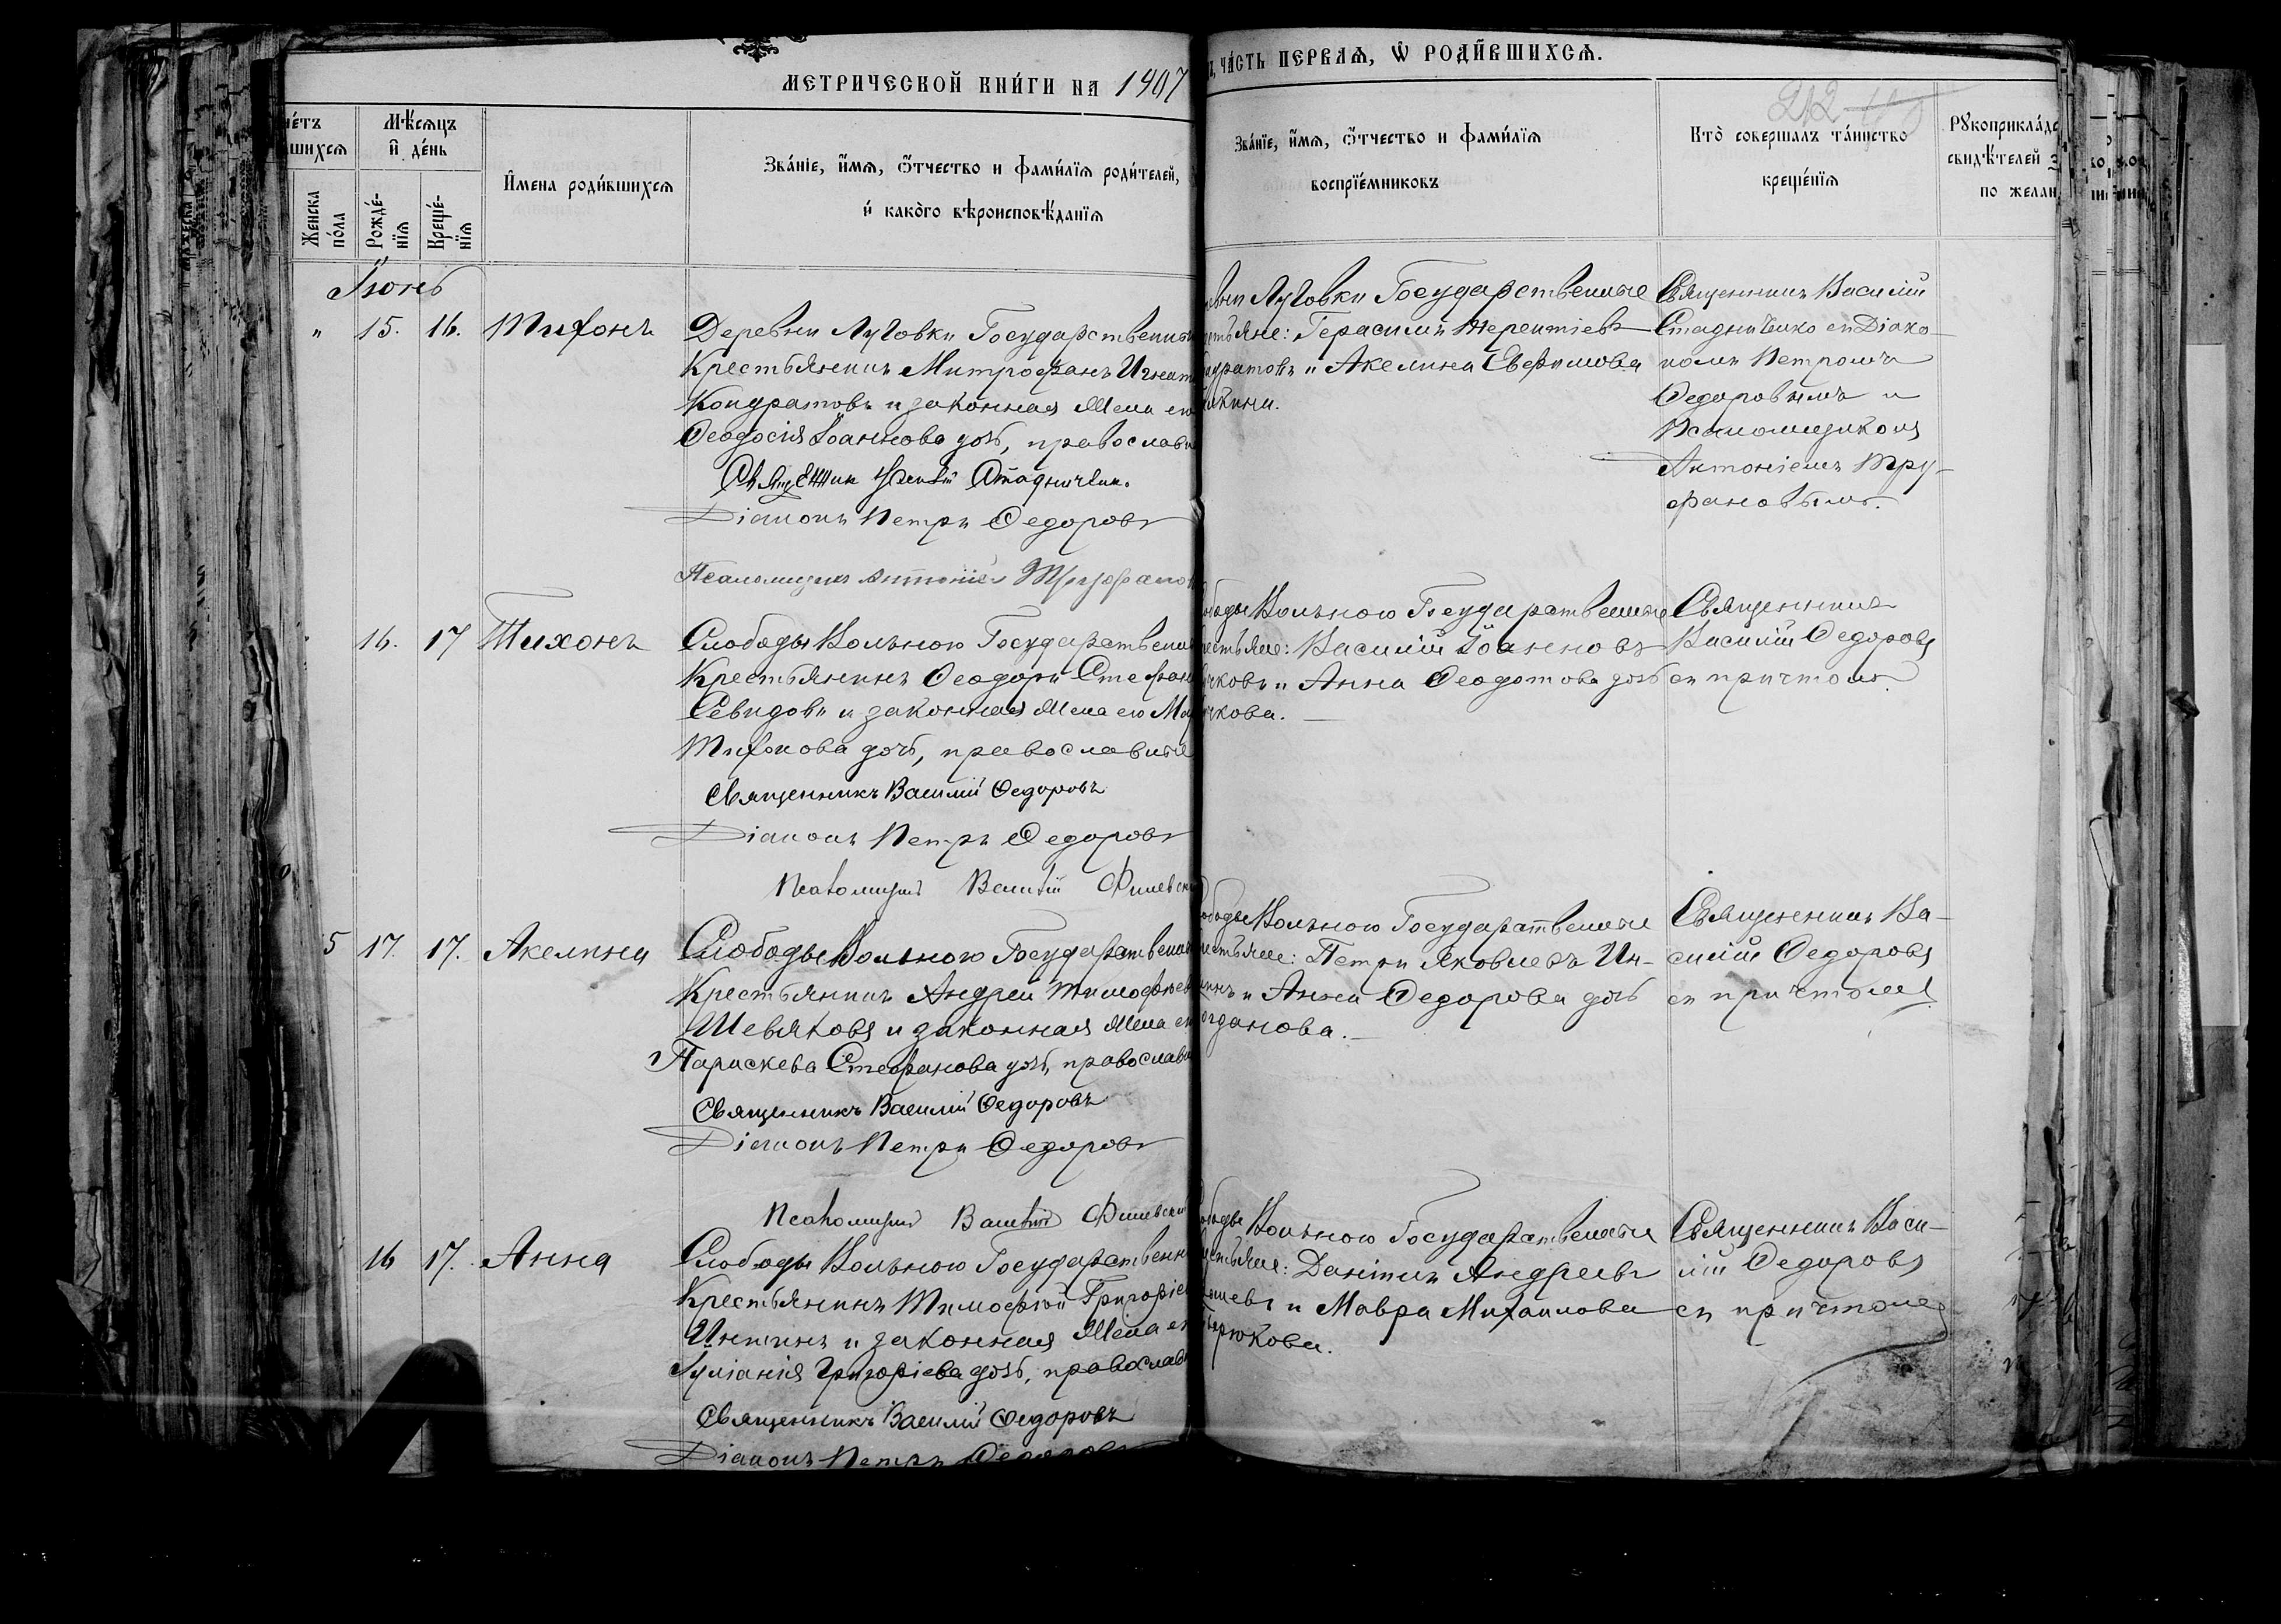 МЕТРИЧЕСКОЙ КНИ́ГИ НА 1907
ЧА́СТЬ ПЕРВАѦ, Ѿ РОДИ́ВШИХСѦ.
212
Мѣ́сѧцъ
и҆ де́нь
Женска
по́ла
Рожде́-
нїѧ
Креще́-
нїѧ
И҆мена роди́вшихсѧ
Зва́нїе, и҆́мѧ, ѻ҆́тчество и фами́лїѧ роди́телей,
и҆ како́го вѣроисповѣ́данїѧ
Зва́нїе, и҆́мѧ, ѻ҆́тчество и фами́лїѧ
воспрїе́мниковъ
Кто̀ соверша́лъ та́инство
креще́нїѧ
Рꙋкоприкла́дс
свидѣ́телей
по желан
Іюнь
" 15. 16. Тихонъ
Деревни Луговки Государственны
Крестьянинъ Митрофанъ Игнат
Кондратовъ и законная жена его
Ѳеодосія Іоаннова дочь, православн
Священникъ Василій Стадниченко
Діаконъ Петръ Ѳедоровъ
Псаломщикъ Антоній Труфанов
евни Луговки Государственные
стьяне: Герасимъ Терентіевъ
ндратовъ и Акелина Евфимова
акина.
Священникъ Василій
Стадниченко съ Діако-
номъ Петромъ
Ѳедоровымъ и
Псаломщикомъ
Антоніемъ Тру-
фановымъ.
16. 17 Тихонъ
Слободы Вольною Государствен
Крестьянинъ Ѳеодоръ Стефан
Севидовъ и законная жена его Ма
Тихонова дочь, православные
Священникъ Василій Ѳедоровъ
Діаконъ Петръ Ѳедоровъ
Псаломщикъ Василій Филевск
ободы Вольною Государственные
рестьяне: Василій Іоанновъ
чковъ и Анна Ѳеодотова дочь
чкова.
Священникъ
Василій Ѳедоровъ
съ причтомъ.
5 17. 17. Акелина
Слободы Вольною Государствен
Крестьянинъ Андрей Тимофеев
Шевяковъ и законная жена ег
Параскева Стефанова дочь, православн
Священникъ Василій Ѳедоровъ
Діаконъ Петръ Ѳедоровъ
Псаломщикъ Василій Филевск
ободы Вольною Государственные
рестьяне: Петръ Яковлевъ Ин-
инъ и Анна Ѳедорова дочь
огданова.
Священникъ Ва-
силій Ѳедоровъ
съ причтомъ
16 17. Анна
Слободы Вольною Государственн
Крестьянинъ Тимофей Григоріе
Инякинъ и законная жена ег
Іуліанія Григоріева дочь, православ
Священникъ Василій Ѳедоровъ
Діаконъ Петръ Ѳедоровъ
ободы Вольною Государственные
естьяне: Даніилъ Андреевъ
и Мавра Михаилова
ерюкова.
Священникъ Васи-
лій Ѳедоровъ
съ причтомъ